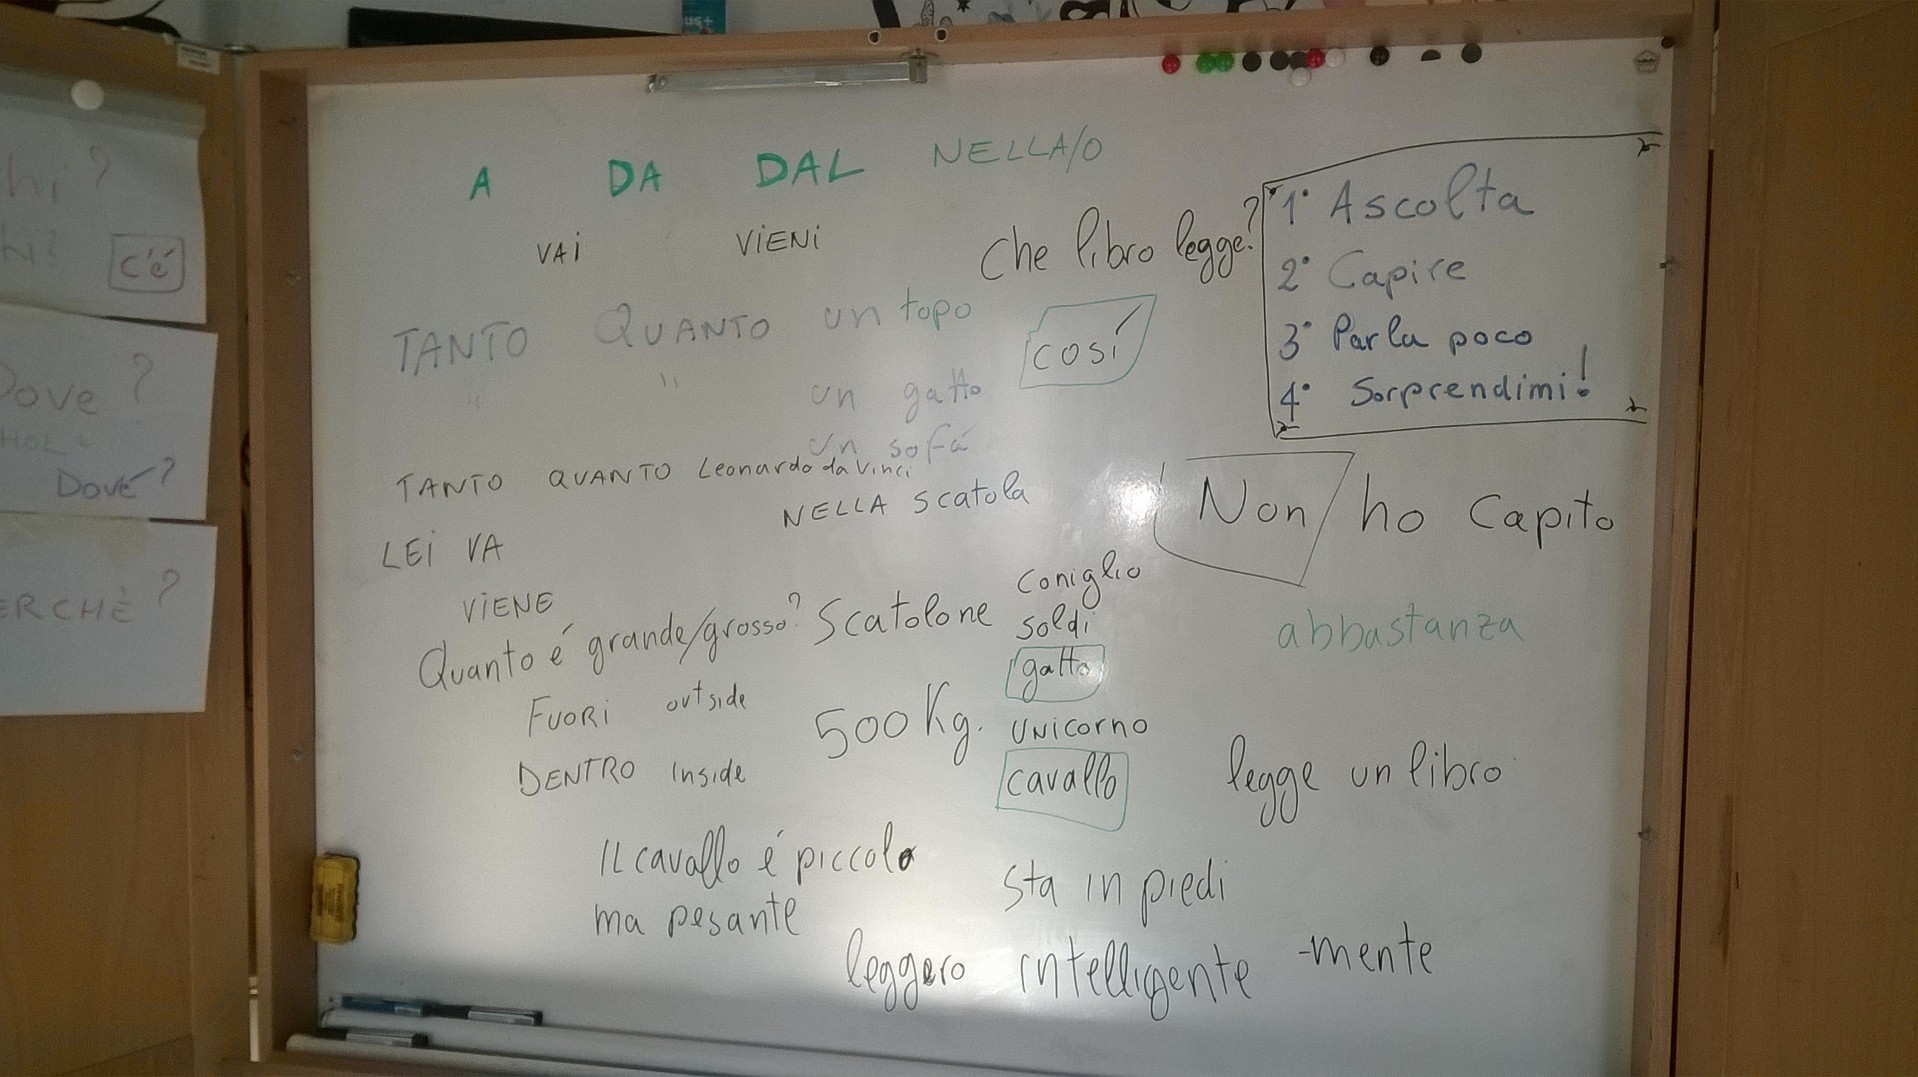 us+
A DA DAL NELLA/O
VAi ViENi
Che libro legge?
1° Ascolta
2° Capire
3° Parla poco
4° Sorprendimi!
TANTO QUANTO un topo
" " un gatto
un sofá
così
TANTO QUANTO Leonardo da Vinci
NELLA scatola
LEi VA
ViENE
Non ho capito
Quanto é grande/grosso? Scatolone
coniglio
soldi
gatto
unicorno
cavallo
abbastanza
FUORi outside
500 Kg.
DENTRO inside
legge un libro
IL cavallo é piccolo
ma pesante
sta in piedi
leggero intelligente -mente
hi?
hi?
c'é
Dove?
Dové?
ERCHÈ?